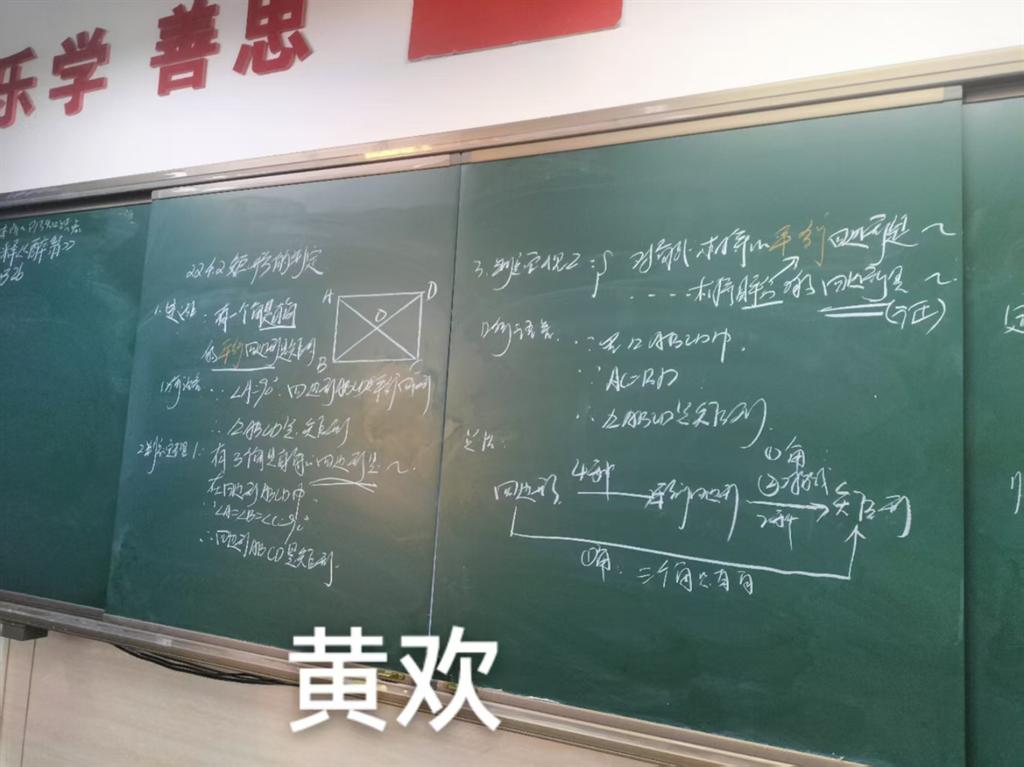 乐学 善思
22.4.2矩形的判定
A D
O
B C
1.定义法:有一个角是直角
的平行四边形是矩形
∵∠A=90° 四边形ABCD平行四边形
∴▱ABCD是矩形
2.判定定理1:有3个角是直角的四边形是~
在四边形ABCD中
∵∠A=∠B=∠C=90°
∴四边形ABCD是矩形
3.判定定理2:对角线相等的平行四边形是~
相等且平分的四边形是~
(可证)
在▱ABCD中
∵AC=BD
∴▱ABCD是矩形
总结:
四边形 4种 平行四边形 ①角 ②对角线 2种 矩形
①角:三个角是直角
黄欢